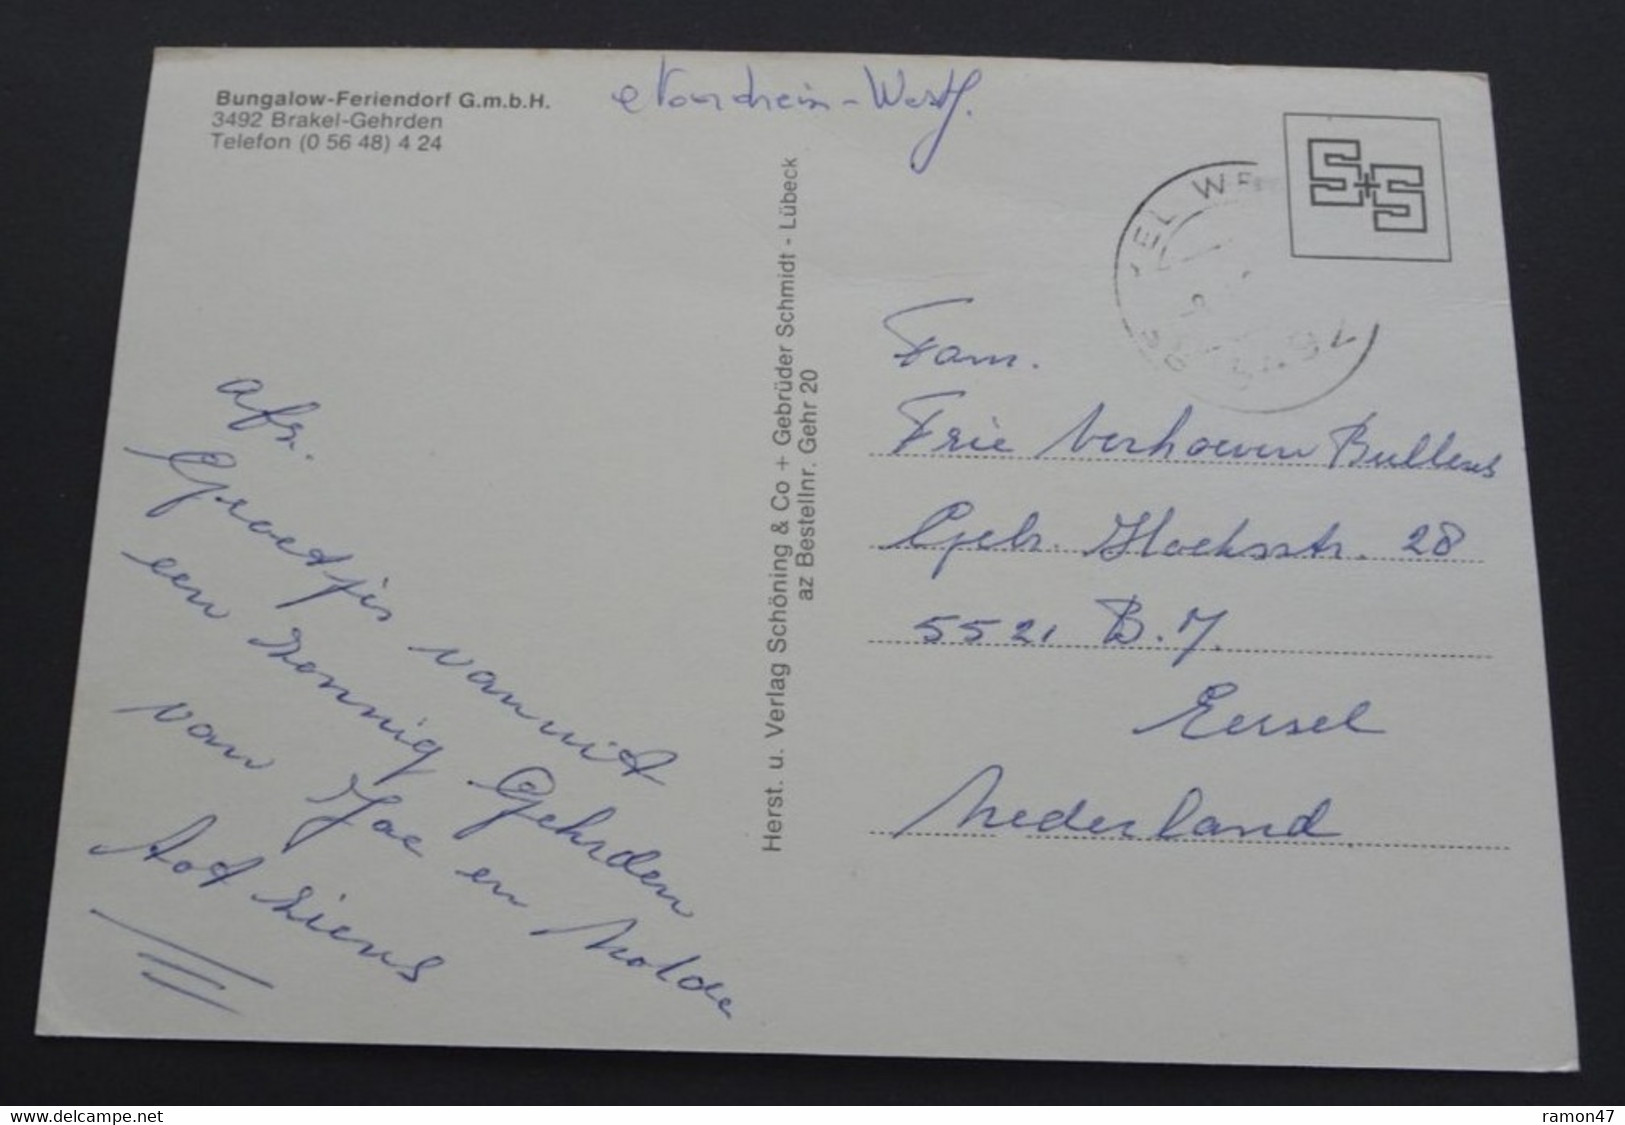 Bungalow-Feriendorf G.m.b.H.
3492 Brakel-Gehrden
Telefon (0 56 48) 4 24
Nordrhein-Westf.
S+S
Herst. u. Verlag Schöning & Co + Gebrüder Schmidt - Lübeck
az Bestellnr. Gehr 20
afz.
Groetjes vanuit
een zonnig Gehrden
van Joe en Nolda
tot ziens
Fam.
Frie Verhoeven Bullens
Gebr. Hoeksstr. 28
5521 B.J.
Eersel
Nederland
delcampe.net
ramon47